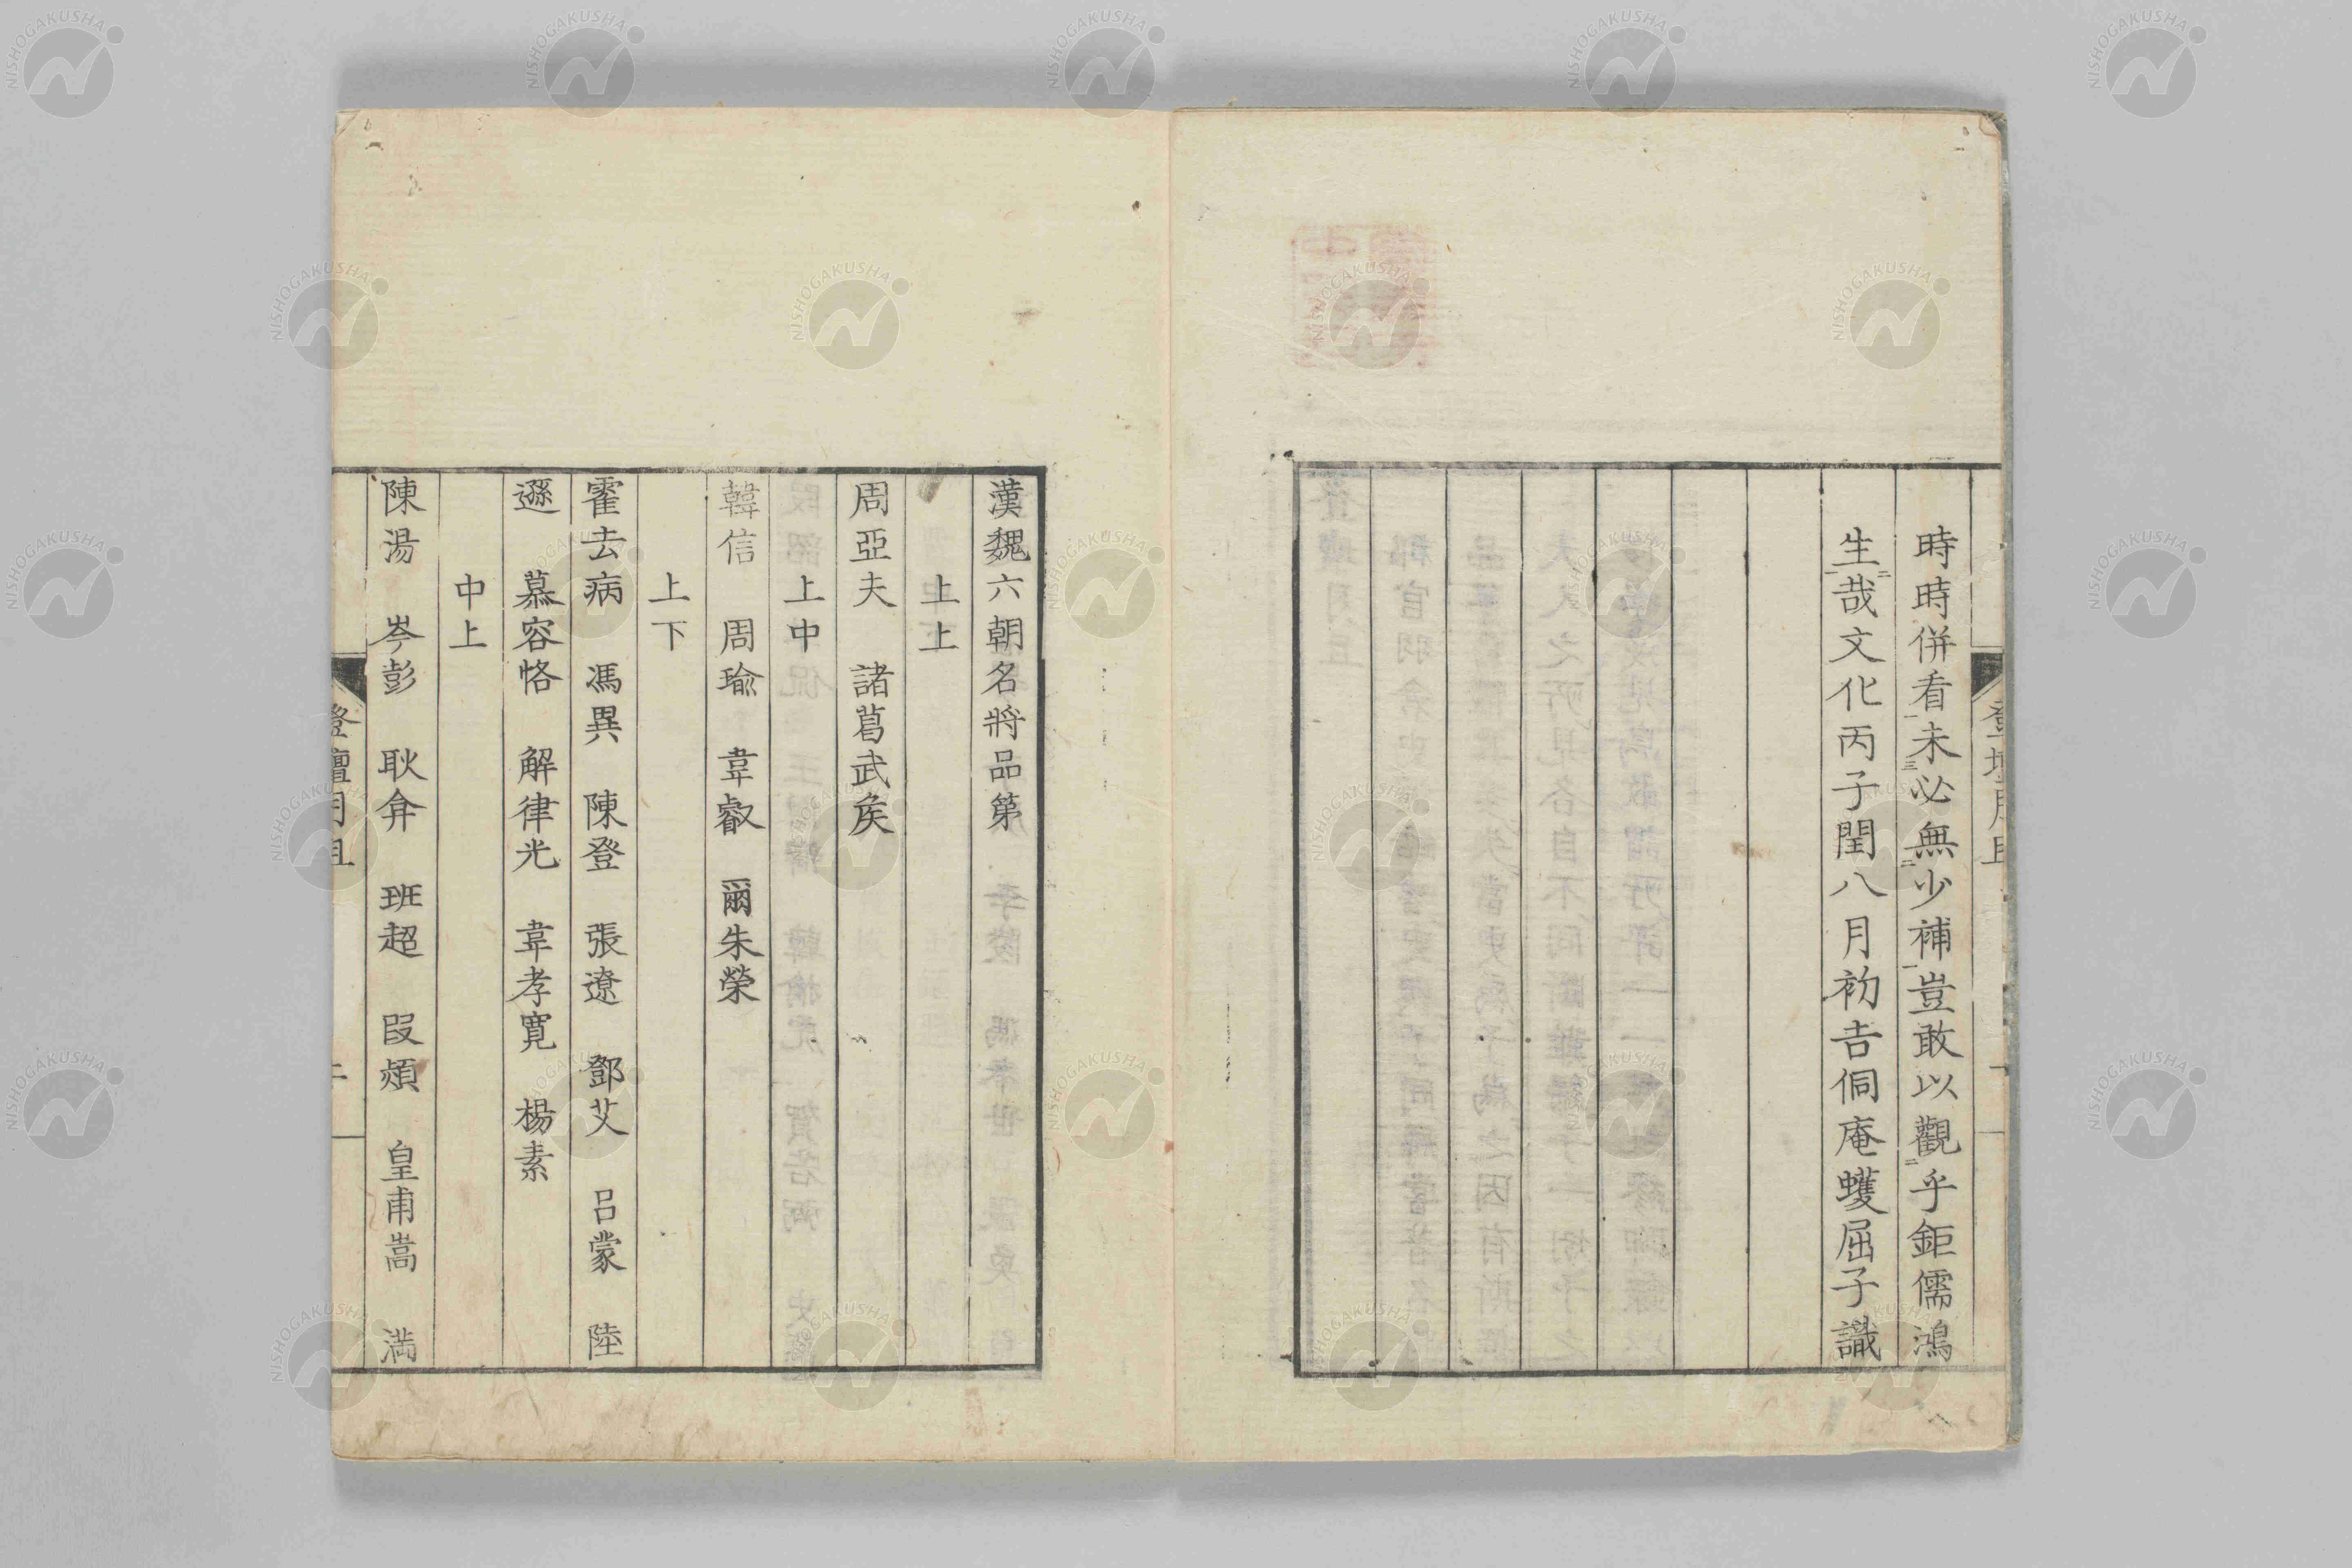 時時併看未必無少補豈敢以觀乎鉅儒鴻
生哉文化丙子閏八月初吉侗庵蠖屈子識
漢魏六朝名將品第
上上
周亞夫　諸葛武矦
上中
韓信　周瑜　韋叡　爾朱榮
上下
霍去病　馮異　陳登　張遼　鄧艾　呂蒙　陸
遜　慕容恪　解律光　韋孝寬　楊素
中上
陳湯　岑彭　耿弇　班超　段熲　皇甫嵩　滿
登壇月旦
NISHOGAKUSHA